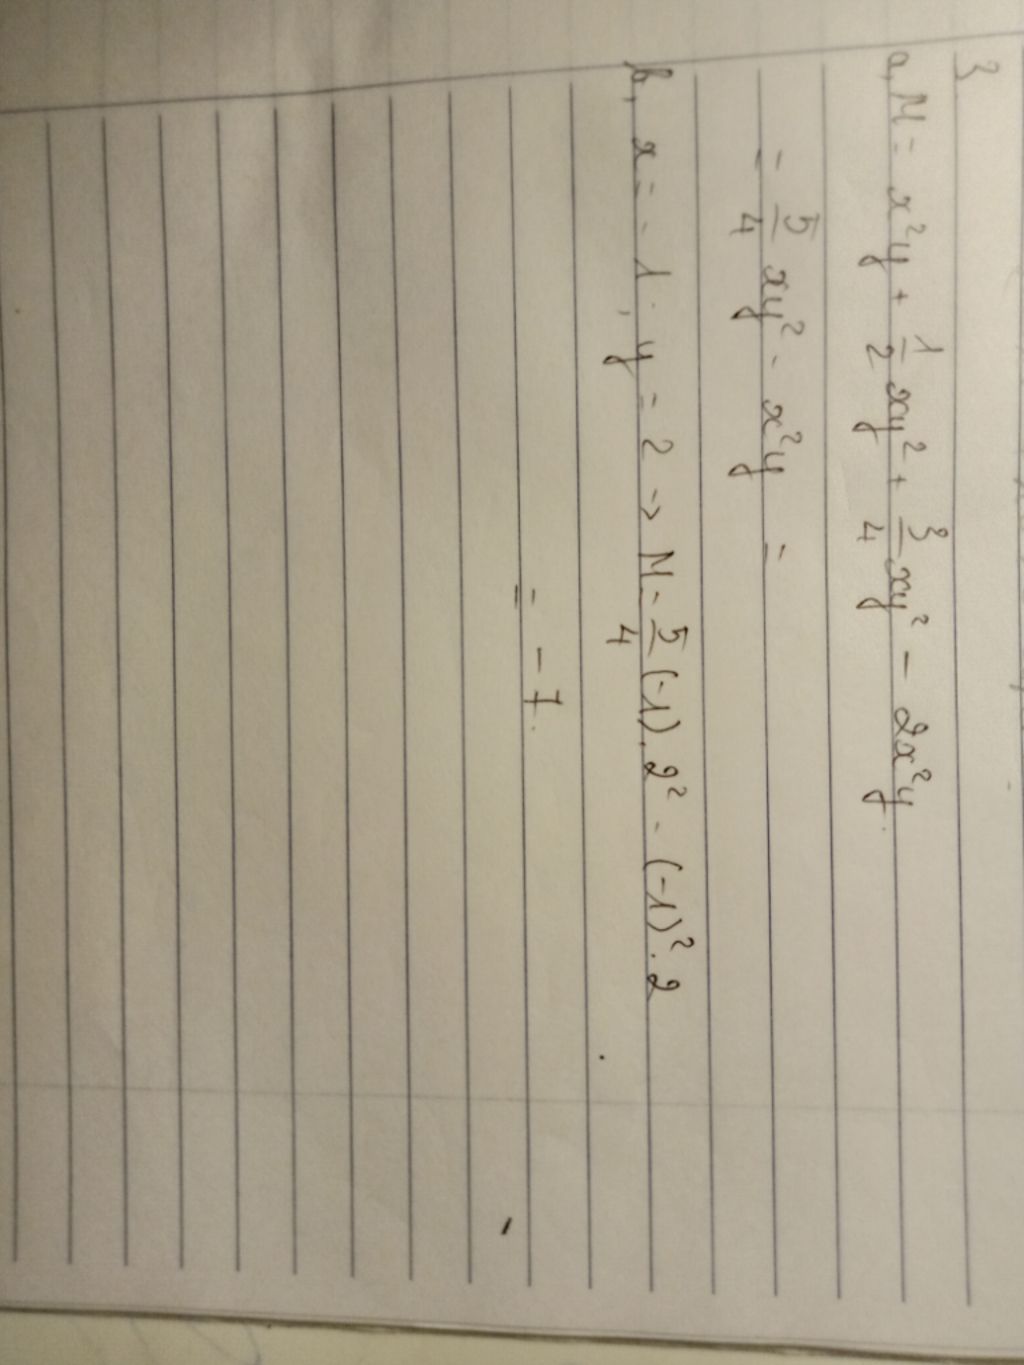 3
a, M = x²y + 1/2 xy² + 3/4 xy² - 2x²y.
= 5/4 xy² - x²y =
b, x = -1, y = 2 → M = 5/4 (-1). 2² - (-1)². 2
= -7.